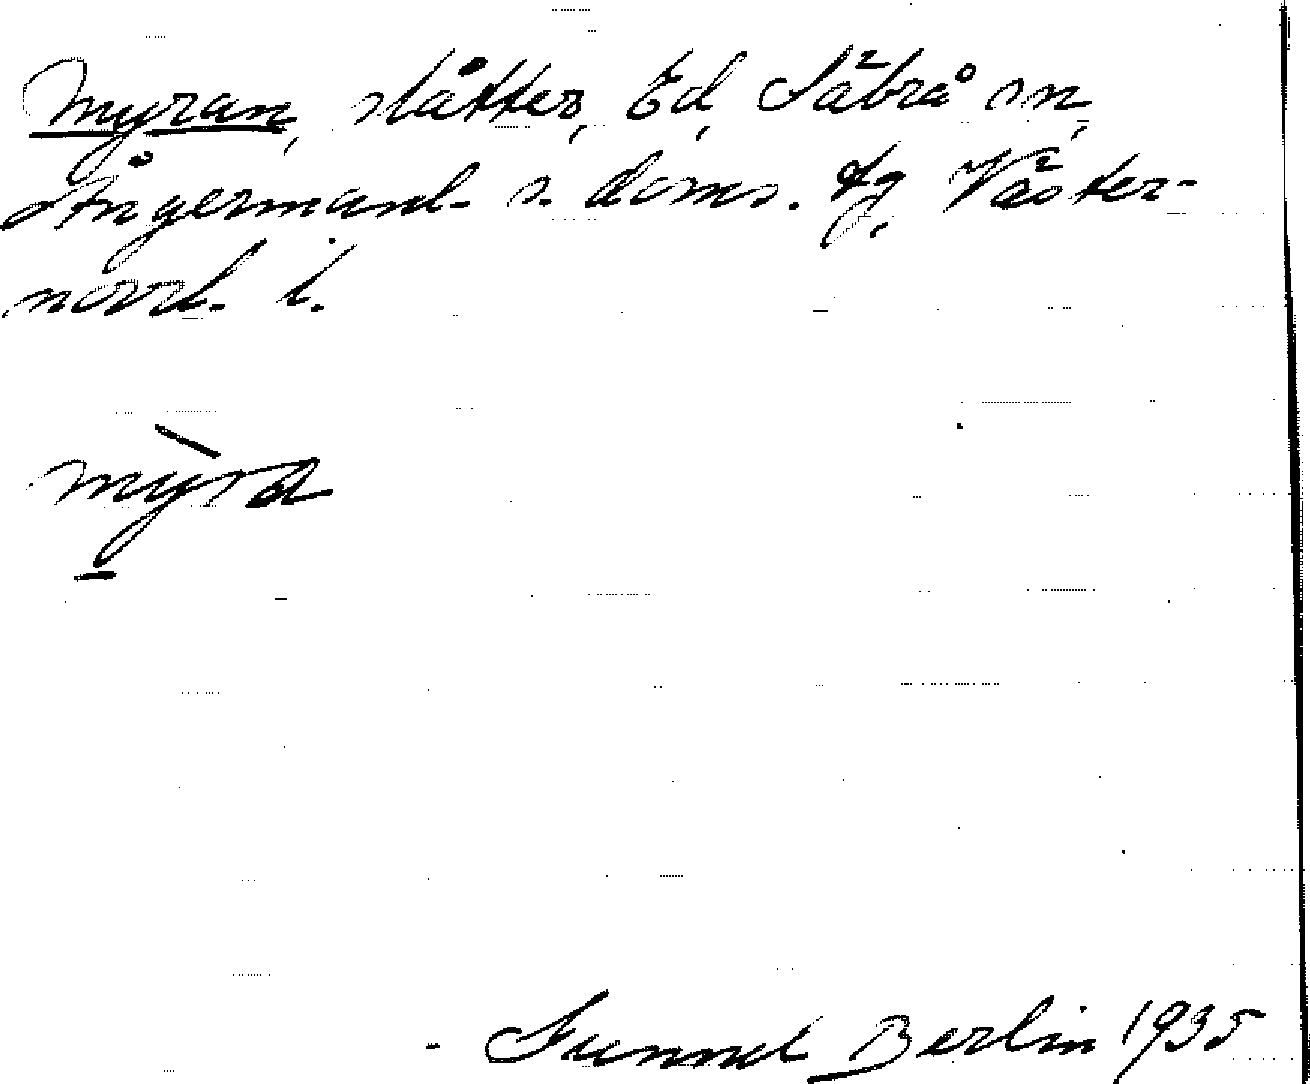 Myran, slåtter, Ed, Säbrå sn,
Ångermanl. s. doms. tg, Väster-
norrl. l.
mỳra
Gunnel Berlin 1935